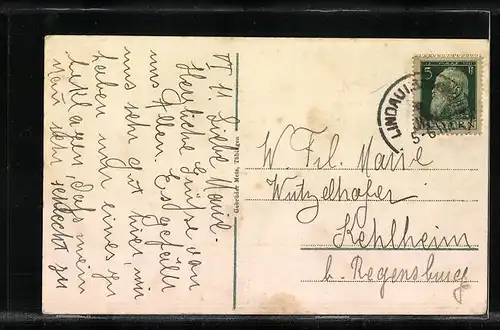 11. Liebe Marie.
Herzliche Grüße von
uns Allen. Es gefällt
uns sehr gut hier, wir
haben nur eines zu
beklagen, daß mein
sehr schlecht zu
Gebrüder Metz, Tübingen
LINDAU
5 Pf
BAYERN
W Frl. Marie
Wutzelhofer
Kehlheim
b. Regensburg